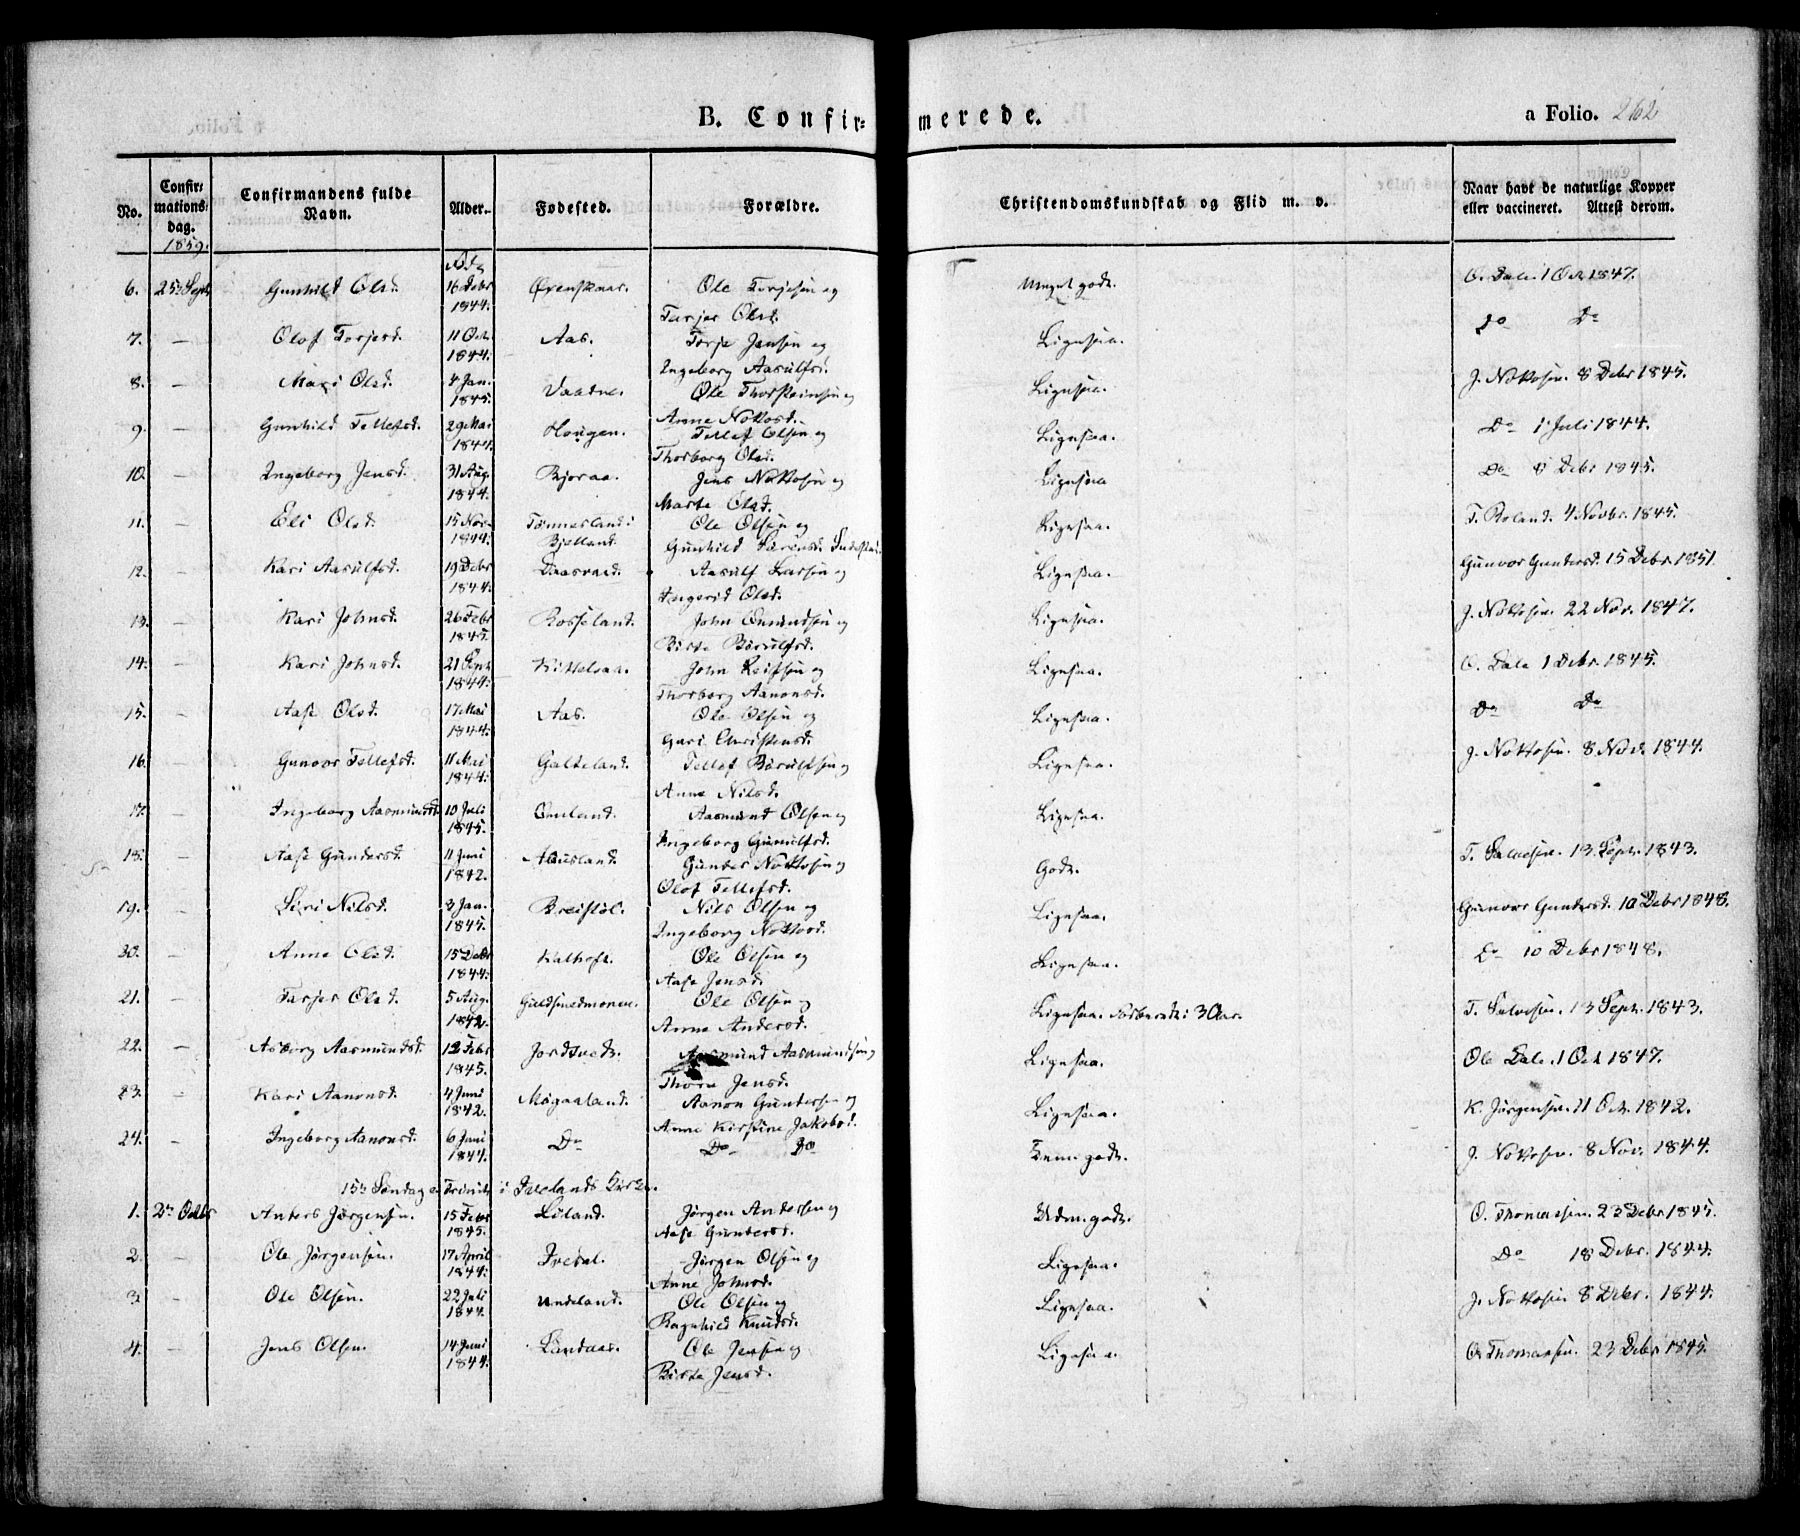 B. Confir- merede.
a Folio. 262
No. | Confirmations dag. | Confirmandens fulde Navn. | Alder. | Fødested. | Forældre. | Christendomskundskab og Flid m. v. | Naar havt de naturlige Kopper eller vaccineret. Attest derom.
1859.
6. 25 Sept Gunhild Olsd. 16 Debr 1844. Ørenskaar. Ole Torjesen og Tarjer Olsd. Meget godt. O. Dale. 1 Oct. 1847.
7. — Olof Torjesd. 11 Oct. 1844. Aas. Torje Jensen og Ingeborg Aasulfsd. Ligesaa. Do Do
8. — Mari Olsd. 4 Jan. 1845. Vaadne. Ole Thorsteinsen og Anne Nottosd. Ligesaa. J. Nottosen. 8 Debr 1845.
9. — Gunhild Tellefsd. 29 Mai 1844. Hougen. Tellef Olsen og Thorborg Olsd. Ligesaa. Do 1 Juli 1844.
10. — Ingeborg Jensd. 31 Aug. 1844. Bjoraa. Jens Nottosen og Marte Olsd. Ligesaa Do 8 Debr 1845.
11. — Eli Olsd. 15 Nov. 1844. Tønnesland i Bjelland. Ole Olsen og Gunhild Sørensd. Ligesaa. T. Roland. 4 Novbr. 1845.
12. — Kari Aasulfsd. 19 Debr 1844. Daasvand. Aasulf Larsen og Ingerid Olsd. Ligesaa. Gunvor Gundersd. 15 Debr. 1851.
13. — Kari Johnsd. 26 Febr 1845. Rosseland. John Omundsen og Birte Baarulfsd. Ligesaa. J. Nottosen. 22 Nov. 1847.
14. — Kari Johnsd. 21 Sept 1844. Kittelsaa. John Leifsen og Thorborg Aanonsd. Ligesaa. O. Dale 1 Debr. 1845.
15. — Aase Olsd. 17 Mai 1844. Aas. Ole Olsen og Guri Christensd. Ligesaa. Do Do
16. — Gunvor Tellefsd. 11 Mai 1844. Galteland. Tellef Baarulfsen og Anne Nilsd. Ligesaa. J. Nottosen. 8 Nov. 1844.
17. — Ingeborg Aasmundsd. 10 Juli 1845. Omland. Aasmund Olsen og Ingeborg Gunulfsd. Ligesaa.
18. — Aase Gundersd. 11 Juni 1842. Abusland. Gunder Nottosen og Olof Tellefsd. Godt. T. Salvesen. 13 Sept. 1843.
19. — Siri Nilsd. 3 Jan. 1845. Breistøl. Nils Olsen og Ingeborg Nottosd. Ligesaa. Gunvor Gundersd. 10 Debr 1848.
20. — Anne Olsd. 15 Debr 1844. Kalhoft. Ole Olsen og Aase Jensd. Ligesaa. Do 10 Debr 1848.
21. — Tarjer Olsd. 5 Aug. 1842. Guldsmedmonen. Ole Olsen og Anne Andersd. Ligesaa. Forberedt i 3 Aar. T. Salvesen. 13 Sept. 1843
22. — Asborg Aasmundsd. 12 Febr 1845. Jordtvedt. Aasmund Aasmundsen og Thore Jensd. Ligesaa. Ole Dale. 1 Oct 1847.
23. — Kari Aanonsd. 4 Juni 1842. Møgaaland. Aanon Gundersen og Anne Kirstine Jakobsd. Ligesaa. K. Jørgensen. 11 Oct. 1842.
24. — Ingeborg Aanonsd. 6 Juni 1844. Do Do Do Tem. godt. J. Nottosen. 8 Nov. 1844.
15de Søndag e. Trinit i Ivelands Kirke.
1. 2 Octbr Anders Jørgensen. 15 Febr 1845. Liland. Jørgen Andersen og Aase Gundersd. Udm. godt. O. Thomassen. 23 Debr 1845.
2. — Ole Jørgensen. 17 April 1844. Ivedal. Jørgen Olsen og Anne Johnsd. Ligesaa. Do 18 Debr. 1844.
3. — Ole Olsen. 22 Juli 1844. Undeland. Ole Olsen og Ragnhild Knudsd. Ligesaa. J. Nottosen 8 Debr. 1844.
4. — Jens Olsen. 14 Juni 1844. Landaas. Ole Jensen og Birte Jensd. Ligesaa. O. Thomassen. 23 Debr 1845.